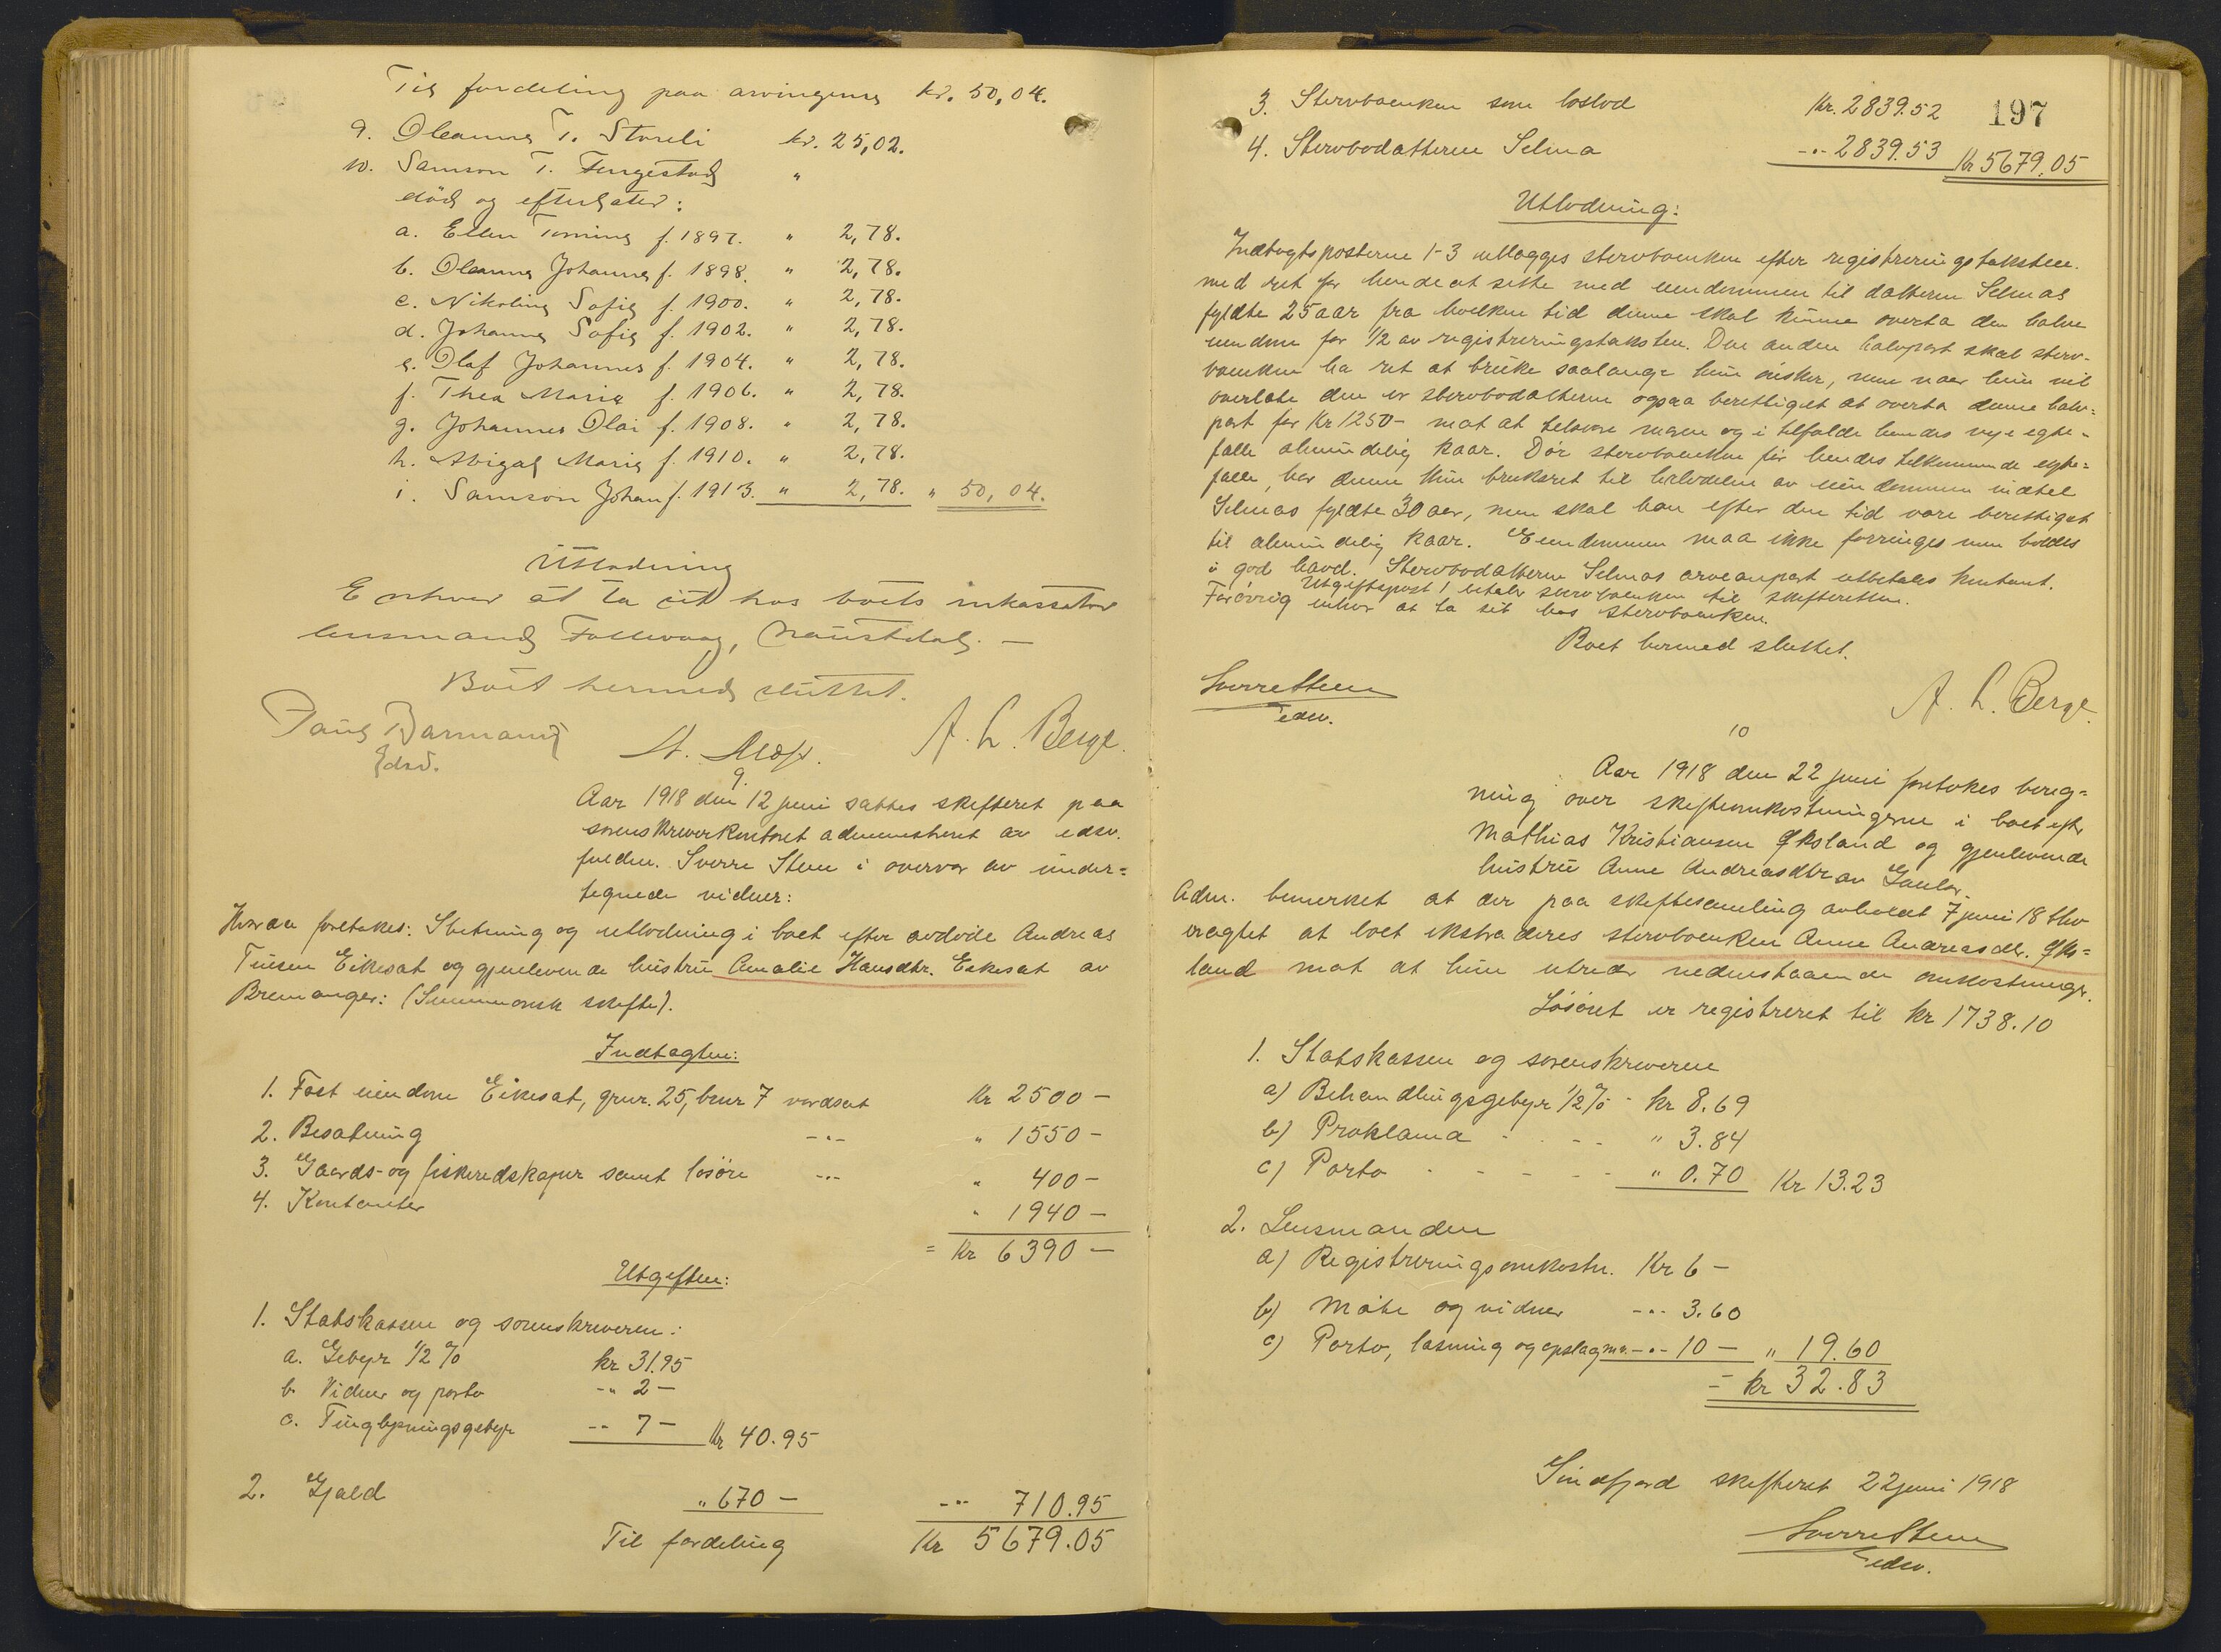 Til fordeling paa arvingerne kr. 50,04.
9. Oleanna T. Storeli kr. 25,02.
10. Samson T. Fengestad "
död og efterlater:
a. Ellen Tomine f. 1897. " 2,78.
b. Oleanna Johanna f. 1898. " 2,78.
c. Nikoline Sofie f. 1900. " 2,78.
d. Johanna Sofie f. 1902. " 2,78.
e. Olaf Johannes f. 1904. " 2,78.
f. Thea Marie f. 1906. " 2,78.
g. Johannes Olai f. 1908. " 2,78.
h. Abigal Marie f. 1910. " 2,78.
i. Samson Johan f. 1913. " 2,78. " 50,04.
Utlodning
Enhver at ta sit hos boets inkassator
lensmand Follevaag, Naustdal. —
Boet hermed sluttet.
A. L. Berge.
edsv.
9.
Aar 1918 den 12 juni sattes skifteret paa
sorenskriverkontoret administreret av edsv.
fuldm. Sverre Steen i overvær av under=
tegnede vidner:
Hvorda foretokes: Slutning og utlodning i boet efter avdöde Andreas
Eikesat og gjenlevende hustru Amalie Hansdtr. Eikesat av
Bremanger: (Summarisk skifte).
Indtægten:
1. Fast eiendom Eikesat, gnr. 25, bnr 7 værdsat Kr 2500 –
2. Besætning -"- " 1550 –
3. Gaards- og fiskeredskaper samt lösöre -"- " 400 –
4. Kontanter " 1940 –
= Kr 6390 –
Utgiften:
1. Statskassen og sorenskriveren:
a. Gebyr 1/2 % kr 31.95
b. Vidner og porto -"- 2 –
c. Tinglysningsgebyr -"- 7 – Kr 40.95
2. Gjæld " 670 – -"- 710.95
Til fordeling Kr 5679.05
197
3. Stervboenken som boslod Kr. 2839.52
4. Stervbodatteren Selma -"- 2839.53 Kr 5679.05
Utlodning:
Indtægtsposterne 1-3 utlægges stervboenken efter registreringstaksten.
med ret for hende at sitte med eiendommen til datteren Selmas
fyldte 25 aar fra hvilken tid denne skal kunne overta den halve
eiendom for 1/2 av registreringstaksten. Den anden halvpart skal sterv-
boenken ha ret at bruke saalænge hun önsker, men naar hun vil
overlate den er stervbodatteren ogsaa berettiget at overta denne halv=
part for Kr 1250 – mot at tilsvare moren og i tilfælde hendes nye egte-
fælle almindelig kaar. Dör stervboenken för hendes tilkommende egte=
fælle, har denne kun bruksret til halvdelen av eiendommen indtil
Selmas fyldte 30 aar, men skal han efter den tid være berettiget
til almindelig kaar. Eiendommen maa ikke forringes men holdes
i god hævd. Stervbodatteren Selmas arveanpart utbetales kontant.
Utgiftspost 1 betaler stervboenken til skifteretten.
Forövrig enhver at ta sit hos stervboenken.
Boet hermed sluttet.
Sverre Steen
edsv.
A. L. Berge.
10
Aar 1918 den 22 juni foretokes bereg=
ning over skifteomkostningerne i boet efter
Mathias Kristiansen Öksland og gjenlevende
hustru Anne Andreasdtr av Gaular.
Adm. bemerket at der paa skiftesamling avholdt 7 juni 18 blev
vragtet at boet ekstraderes stervboenken Anne Andreasdtr. Öks=
land mot at hun utreder nedenstaaende omkostninger.
Lösöret er registreret til kr 1738.10
1. Statskassen og sorenskriveren
a) Behandlingsgebyr 1/2 % - kr 8.69
b) Proklama - - - " 3.84
c) Porto - - - - " 0.70 Kr 13.23
2. Lensmanden
a) Registreringsomkostn. Kr 6 –
b) Möte og vidner -"- 3.60
c) Porto, læsning og opslag m.v. -"- 10 – " 19.60
= kr 32.83
Sundfjord skifteret 22 juni 1918
Sverre Steen
edsv.